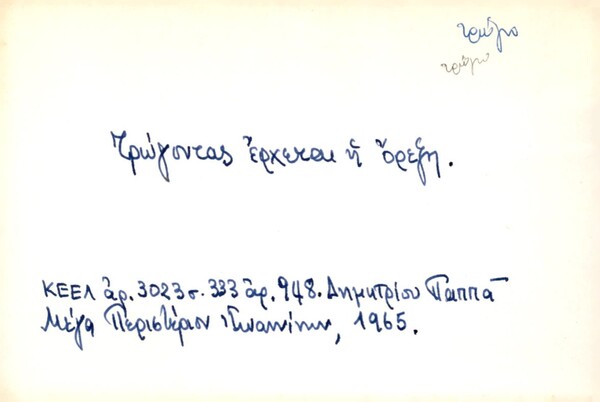 τρώγω
τρώγω
Τρώγοντας ἔρχεται ἡ ὄρεξη.
ΚΕΕΛ ἀρ. 3023 σ. 333 ἀρ. 948. Δημητρίου Παππᾶ
Μέγα Περιστέριον Ἰωαννίνων, 1965.